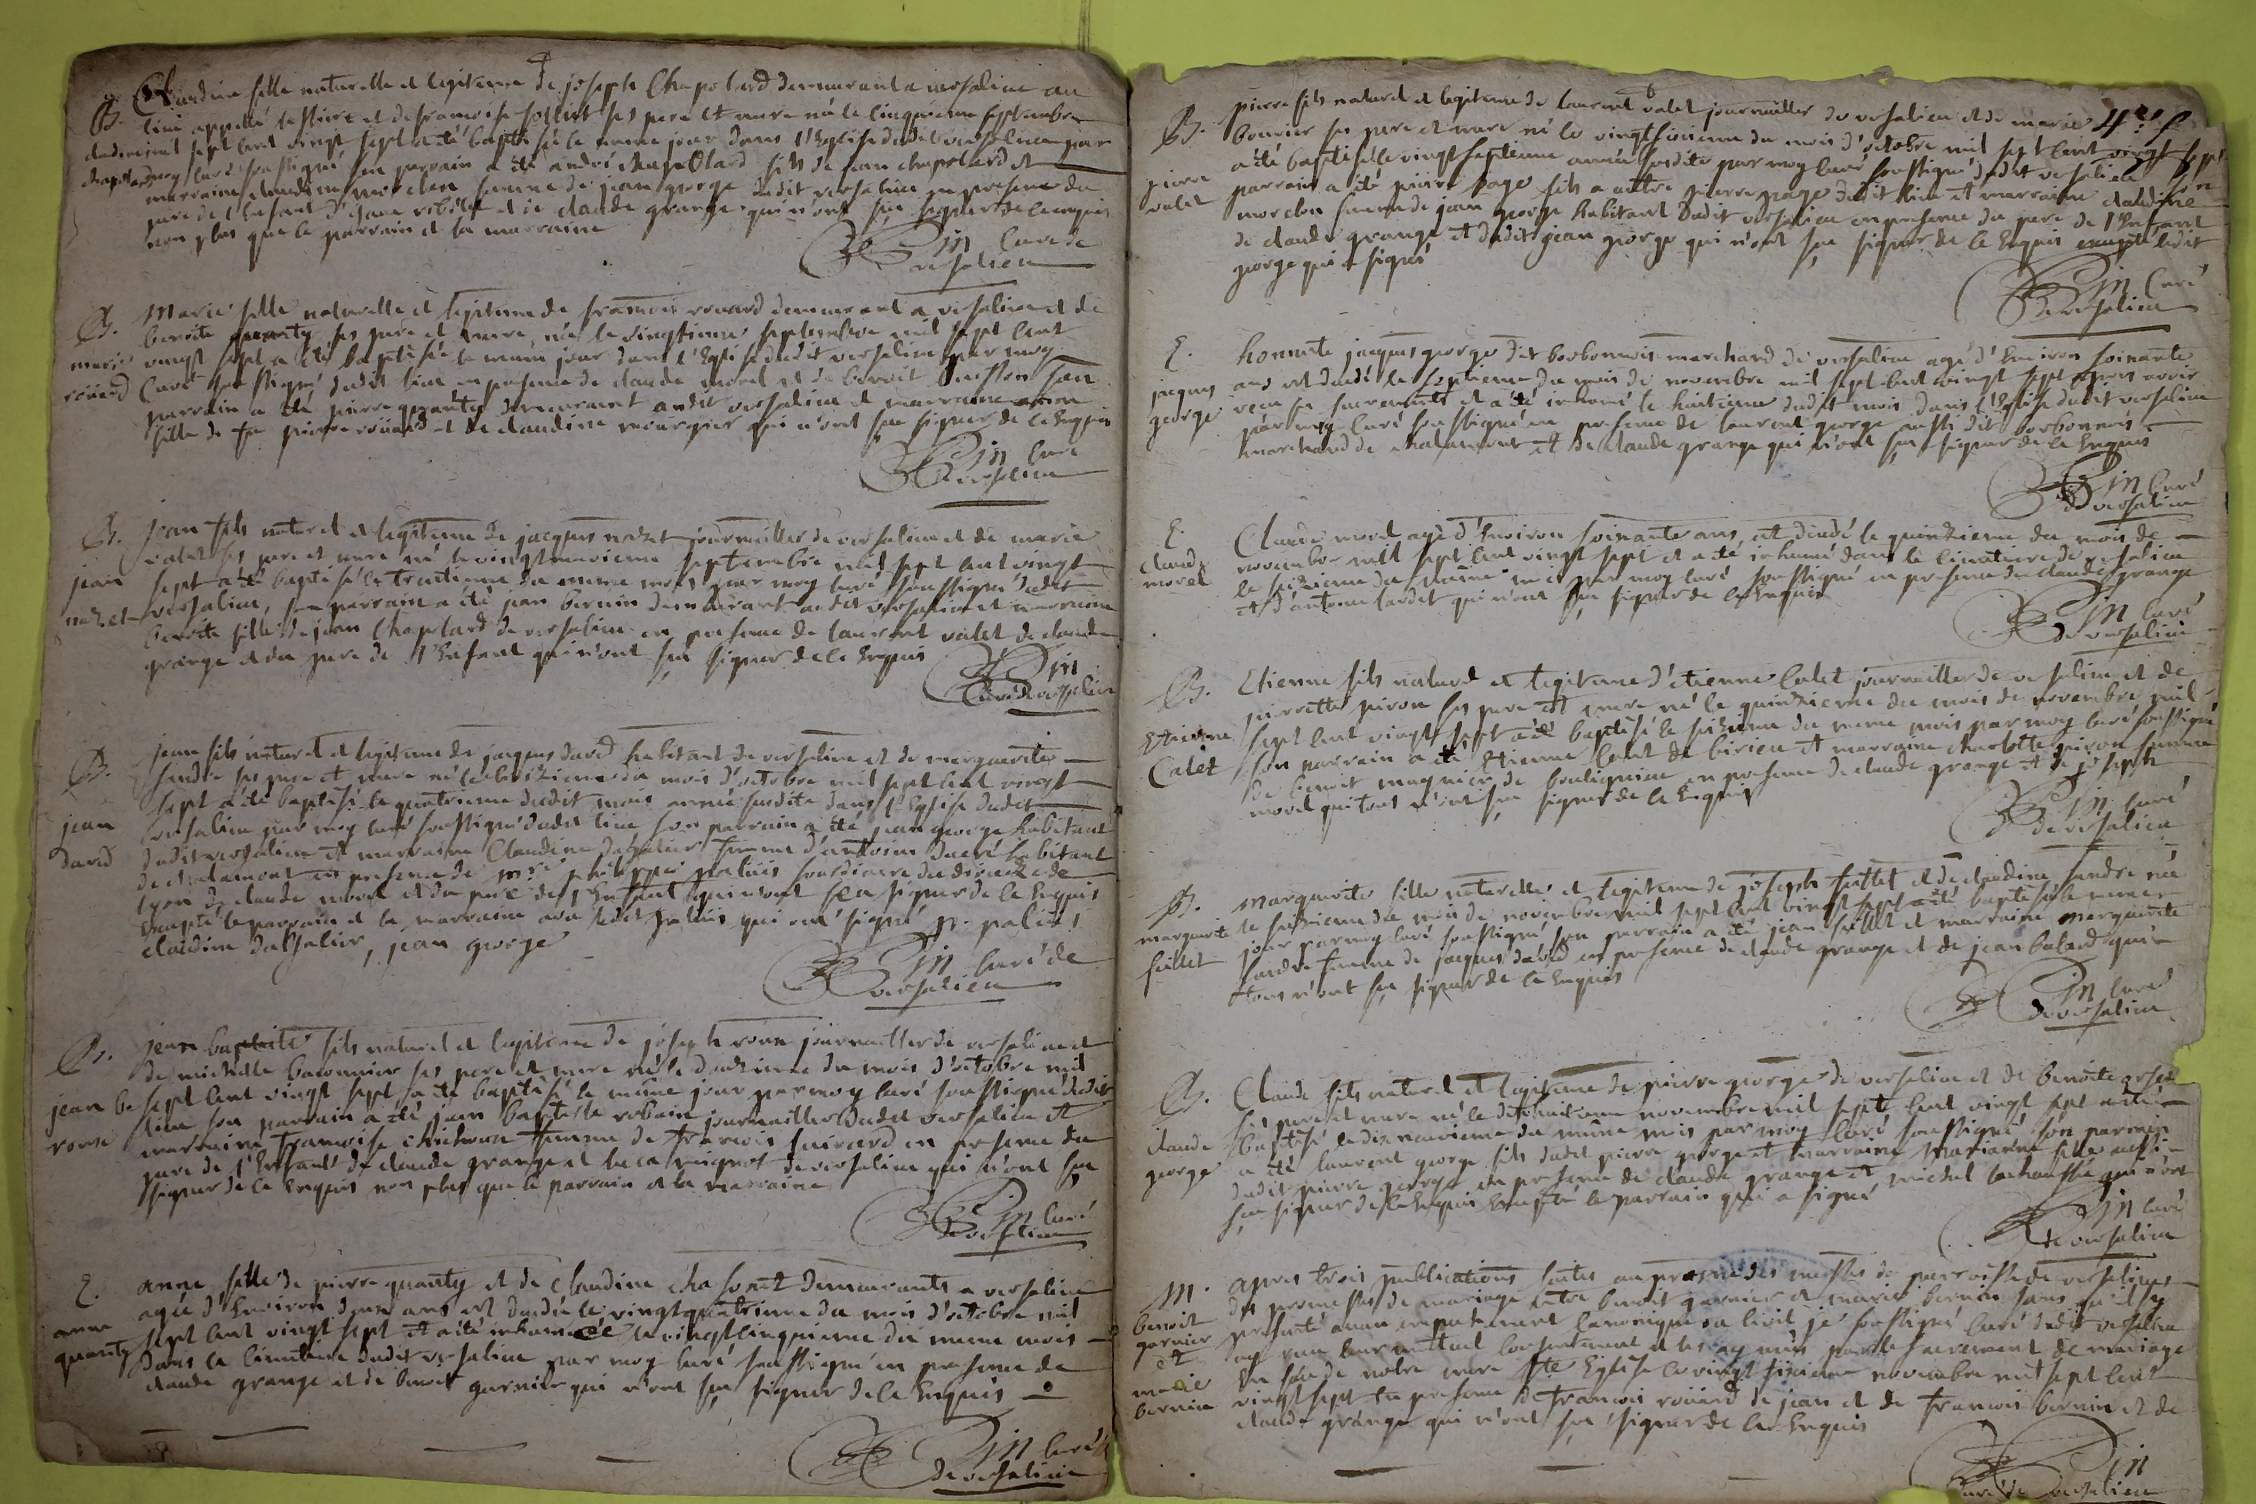 B.
claudine
chapolard
Claudine fille naturelle et legitime de joseph Chapolard demeurant a versalieu au
lieu appellé et de francoise ses pere et mere né le cinquieme septembre
mil sept cent vingt sept a été baptisé le meme jour dans l'Eglise dudit versalieu par
moy curé soussigné son parrain a été andré chapollard fils de jean chapolard et
marraine claudine morelon femme de jean george dudit versalieu en presence du
pere de l'Enfant d'Etienne et de claude grange qui n'ont sçu signer de ce enquis
non plus que le parrain et la marraine
curé de
versalieu
B.
marie
roüard
Marie fille naturelle et legitime de francois rouard demeurant a versalieu et de
benoite quanty ses pere et mere, née le vingtieme septembre mil sept cent
vingt sept a été baptisée le meme jour dans l'Eglise dudit versalieu par moy
Curé soussigné dudit lieu en presence de claude morel et de benoit son
parrain a été pierre quanty demeurant audit versalieu et marraine
fille de feu pierre roüard et de claudine mourgier qui n'ont sçu signer de ce enquis
curé
de versalieu
B.
jean
nazet
jean fils naturel et legitime de jacques nazet journaillier de versalieu et de marie
valet ses pere et mere né le vingtneuvieme septembre mil sept cent vingt
sept a été baptisé le trentieme du meme mois par moy curé soussigné dudit
versalieu, son parrain a été jean bernin demeurant audit versalieu et marraine
benoite fille de jean Chapolard de versalieu en presence de laurent valet de claude
grange et du pere de l'Enfant qui n'ont sçu signer de ce enquis
Curé de versalieu
B.
jean
david
jean fils naturel et legitime de jacques david habitant de versalieu et de marguerite
sandre ses pere et mere né le du mois d'octobre mil sept cent vingt
sept a été baptisé le quatorsieme dudit mois année susdite dans l'Eglise dudit
versalieu par moy curé soussigné dudit lieu son parrain a été jean george habitant
dudit versalieu et marraine Claudine femme d'antoine habitant
de chalamont en presence de mre philippe palluis sousdiacre du diocese de
lyon de claude morel et du pere de l'Enfant qui n'ont sçu signer de ce enquis
excepté le parrain et la marraine avec ledit palluis qui ont signé p. palluis
claudine, jean george
curé de
versalieu
B.
jean b
roux
jean baptiste fils naturel et legitime de joseph roux journaillier de versalieu et
de michelle baconnier ses pere et mere né le douzieme du mois d'octobre mil
sept cent vingt sept a été baptisé le même jour par moy curé soussigné dudit
lieu son parrain a été jean baptiste robain journaillier dudit versalieu et
marraine francoise femme de francois en presence du
pere de l'Enfant de claude grange et luca mignot de versalieu qui n'ont sçu
signer de ce enquis non plus que le parrain et la marraine
curé
de versalieu
E.
anne
quanty
anne fille de pierre quanty et de Claudine demeurants a versalieu
agée d'Environ deux ans est dcedée le vingtquatrieme du mois d'octobre mil
sept cent vingt sept et a été inhumée le vingtcinquieme du meme mois
dans le Cimetiere dudit versalieu par moy curé soussigné en presence de
claude grange et de benoit garnier qui n'ont sçu signer de ce enquis
curé
de versalieu
B.
pierre
valet
pierre fils naturel et legitime de laurent valet journaillier de versalieu et de marie
bouvier ses pere et mere né le vingtsixieme du mois d'octobre mil sept cent vingt sept
a été baptisé le vingtseptieme année susdite par moy curé soussigné dudit versalieu son
parrain a été pierre page fils a autre pierre page dudit lieu et marraine claudine
morelon femme de jean george habitant dudit versalieu en presence du pere de l'Enfant
de claude grange et dudit jean george qui n'ont sçu signer de ce enquis excepté ledit
george qui a signé
curé
de versalieu
E.
jacques
george
honnete jacques george dit borbonnois marchand de versalieu agé d'Environ soixante
ans est dcedé le septieme du mois de novembre mil sept cent vingt sept apres avoir
receu ses sacrements et a été inhumé le huitieme dudit mois dans l'Eglise dudit versalieu
par moy curé soussigné en presence de laurent george aussi dit borbonnois
marchand de chalamont et de claude grange qui n'ont sçu signer de ce enquis
curé
de versalieu
E.
claude
morel
Claude morel agé d'Environ soixante ans, est dcedé le quinzieme du mois de
novembre mil sept cent vingt sept et a été inhumé dans le cimetiere de versalieu
le seizieme du même mois par moy curé soussigné en presence de claude grange
et d'antoine tardit qui n'ont sçu signer de ce enquis
curé
de versalieu
B.
Etienne
Calet
Etienne fils naturel et legitime d'étienne Calet journaillier de versalieu et de
pierrette piron ses pere et mere né le quinzieme du mois de novembre mil
sept cent vingt sept a été baptisé le seizieme du meme mois par moy curé soussigné
son parrain a été Etienne Calet de birieu et marraine charlotte piron femme
de benoit mugnier de bouligneux en presence de claude grange et de joseph
morel qui tous n'ont sçu signer de ce enquis
curé
de versalieu
B.
marguerite
fuillet
marguerite fille naturelle et legitime de joseph fuillet et de claudine sandre née
le seizieme du mois de novembre mil sept cent vingt sept a été baptisée le meme
jour par moy curé soussigné son parrain a été jean fuillet et marraine marguerite
sandre femme de jacques david en presence de claude grange et de jean balard qui
tous n'ont sçu signer de ce enquis
curé
de versalieu
B.
claude
george
Claude fils naturel et legitime de pierre george de versalieu et de benoite
ses pere et mere né le dixhuitieme novembre mil sept cent vingt sept a été
baptisé le dixneuvieme du même mois par moy curé soussigné son parrain
a été laurent george fils dudit pierre george et marraine Marianne fille aussi
dudit pierre george en presence de claude grange et michel lachaussée qui n'ont
sçu signer de ce enquis excepté le parrain qui a signé
curé
de versalieu
M.
benoit
garnier
et
marie
bernin
apres trois publications faites au prosne des messes de parroisse de versalieu
des promesses de mariage entre benoit garnier et marie bernin sans qu'il se
presenté aucun empechement canonique ou civil je soussigné curé dudit versalieu
ay receu leur mutuel consentement et les ay unis par le sacrement de mariage
en face de notre mere Ste Eglise le vingt sixieme novembre mil sept cent
vingt sept en presence de francois roüard de jean et de francois bernin et de
claude grange qui n'ont sçu signer de ce enquis
curé de versalieu